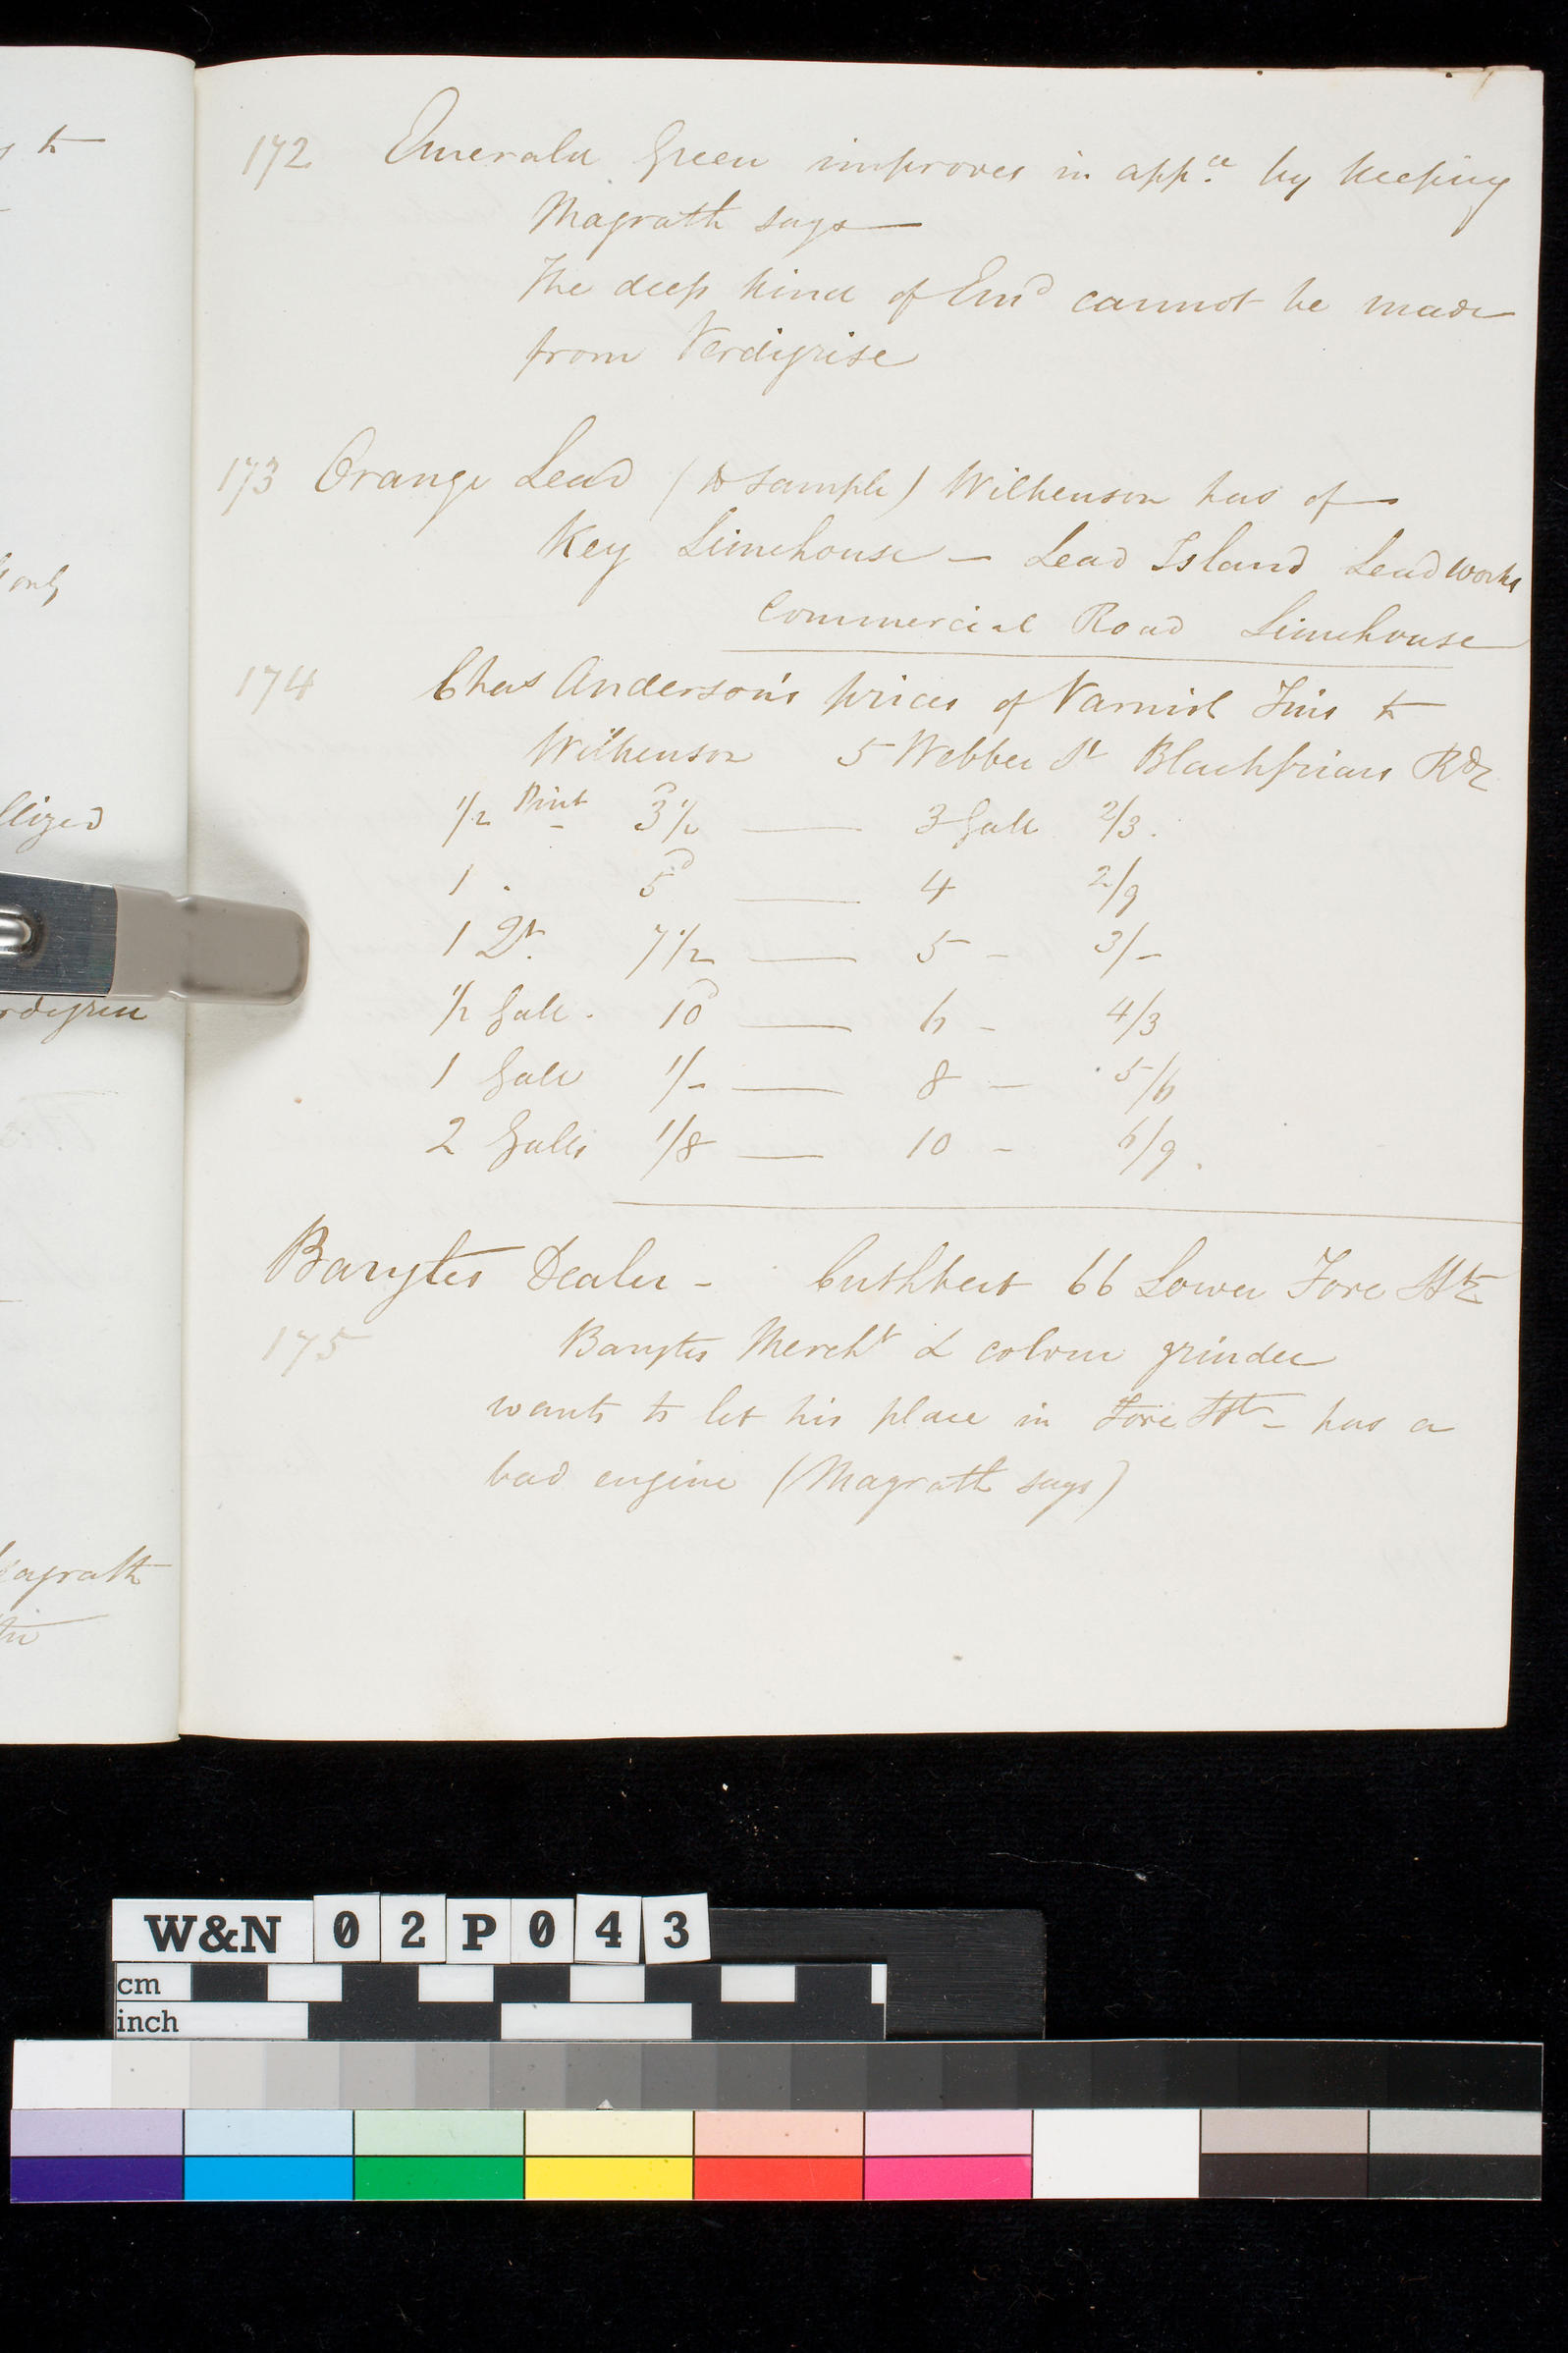 172 Emerald Green improves in appce by keeping
Magrath says —
The deep kind of Emd cannot be made
from Verdigrise
173 Orange Lead ( sample) Wilkenson has of —
Key Limehouse — Lead Island Lead works
Commercial Road Limehouse
174 Chas Anderson's prices of Varnish Tins to
Wilkenson 5 Webber St Blackfriars Rd
1/2 Pint 3 1/2 — 3 Gall 2/3.
1 . 5d — 4 2/9
1 Qt. 7 1/2 — 5 - 3/-
1/2 Gall . 10d — 6 - 4/3
1 Gall 1/- — 8 - 5/6
2 Galls 1/8 — 10 - 6/9.
Barytes Dealer - Cuthbert 66 Lower Fore St
175 Barytes Mercht & colour grinder
wants to let his place in Fore St - has a
bad engine (Magrath says)
to
only
llized
rdigrise
agrath
W&N 02P043
cm
inch